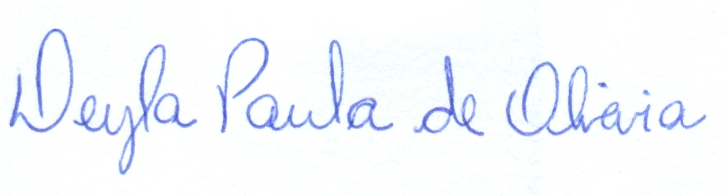 Deyla Paula de Oliveira